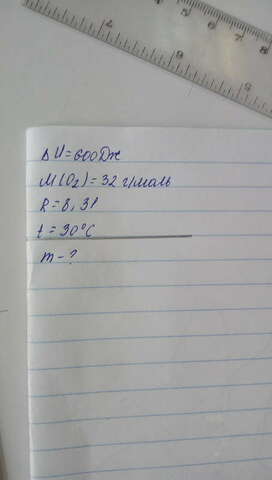 7 8 9
ΔU=600Дж
M(O₂)=32 г/моль
R=8,31
t=30°C
m-?